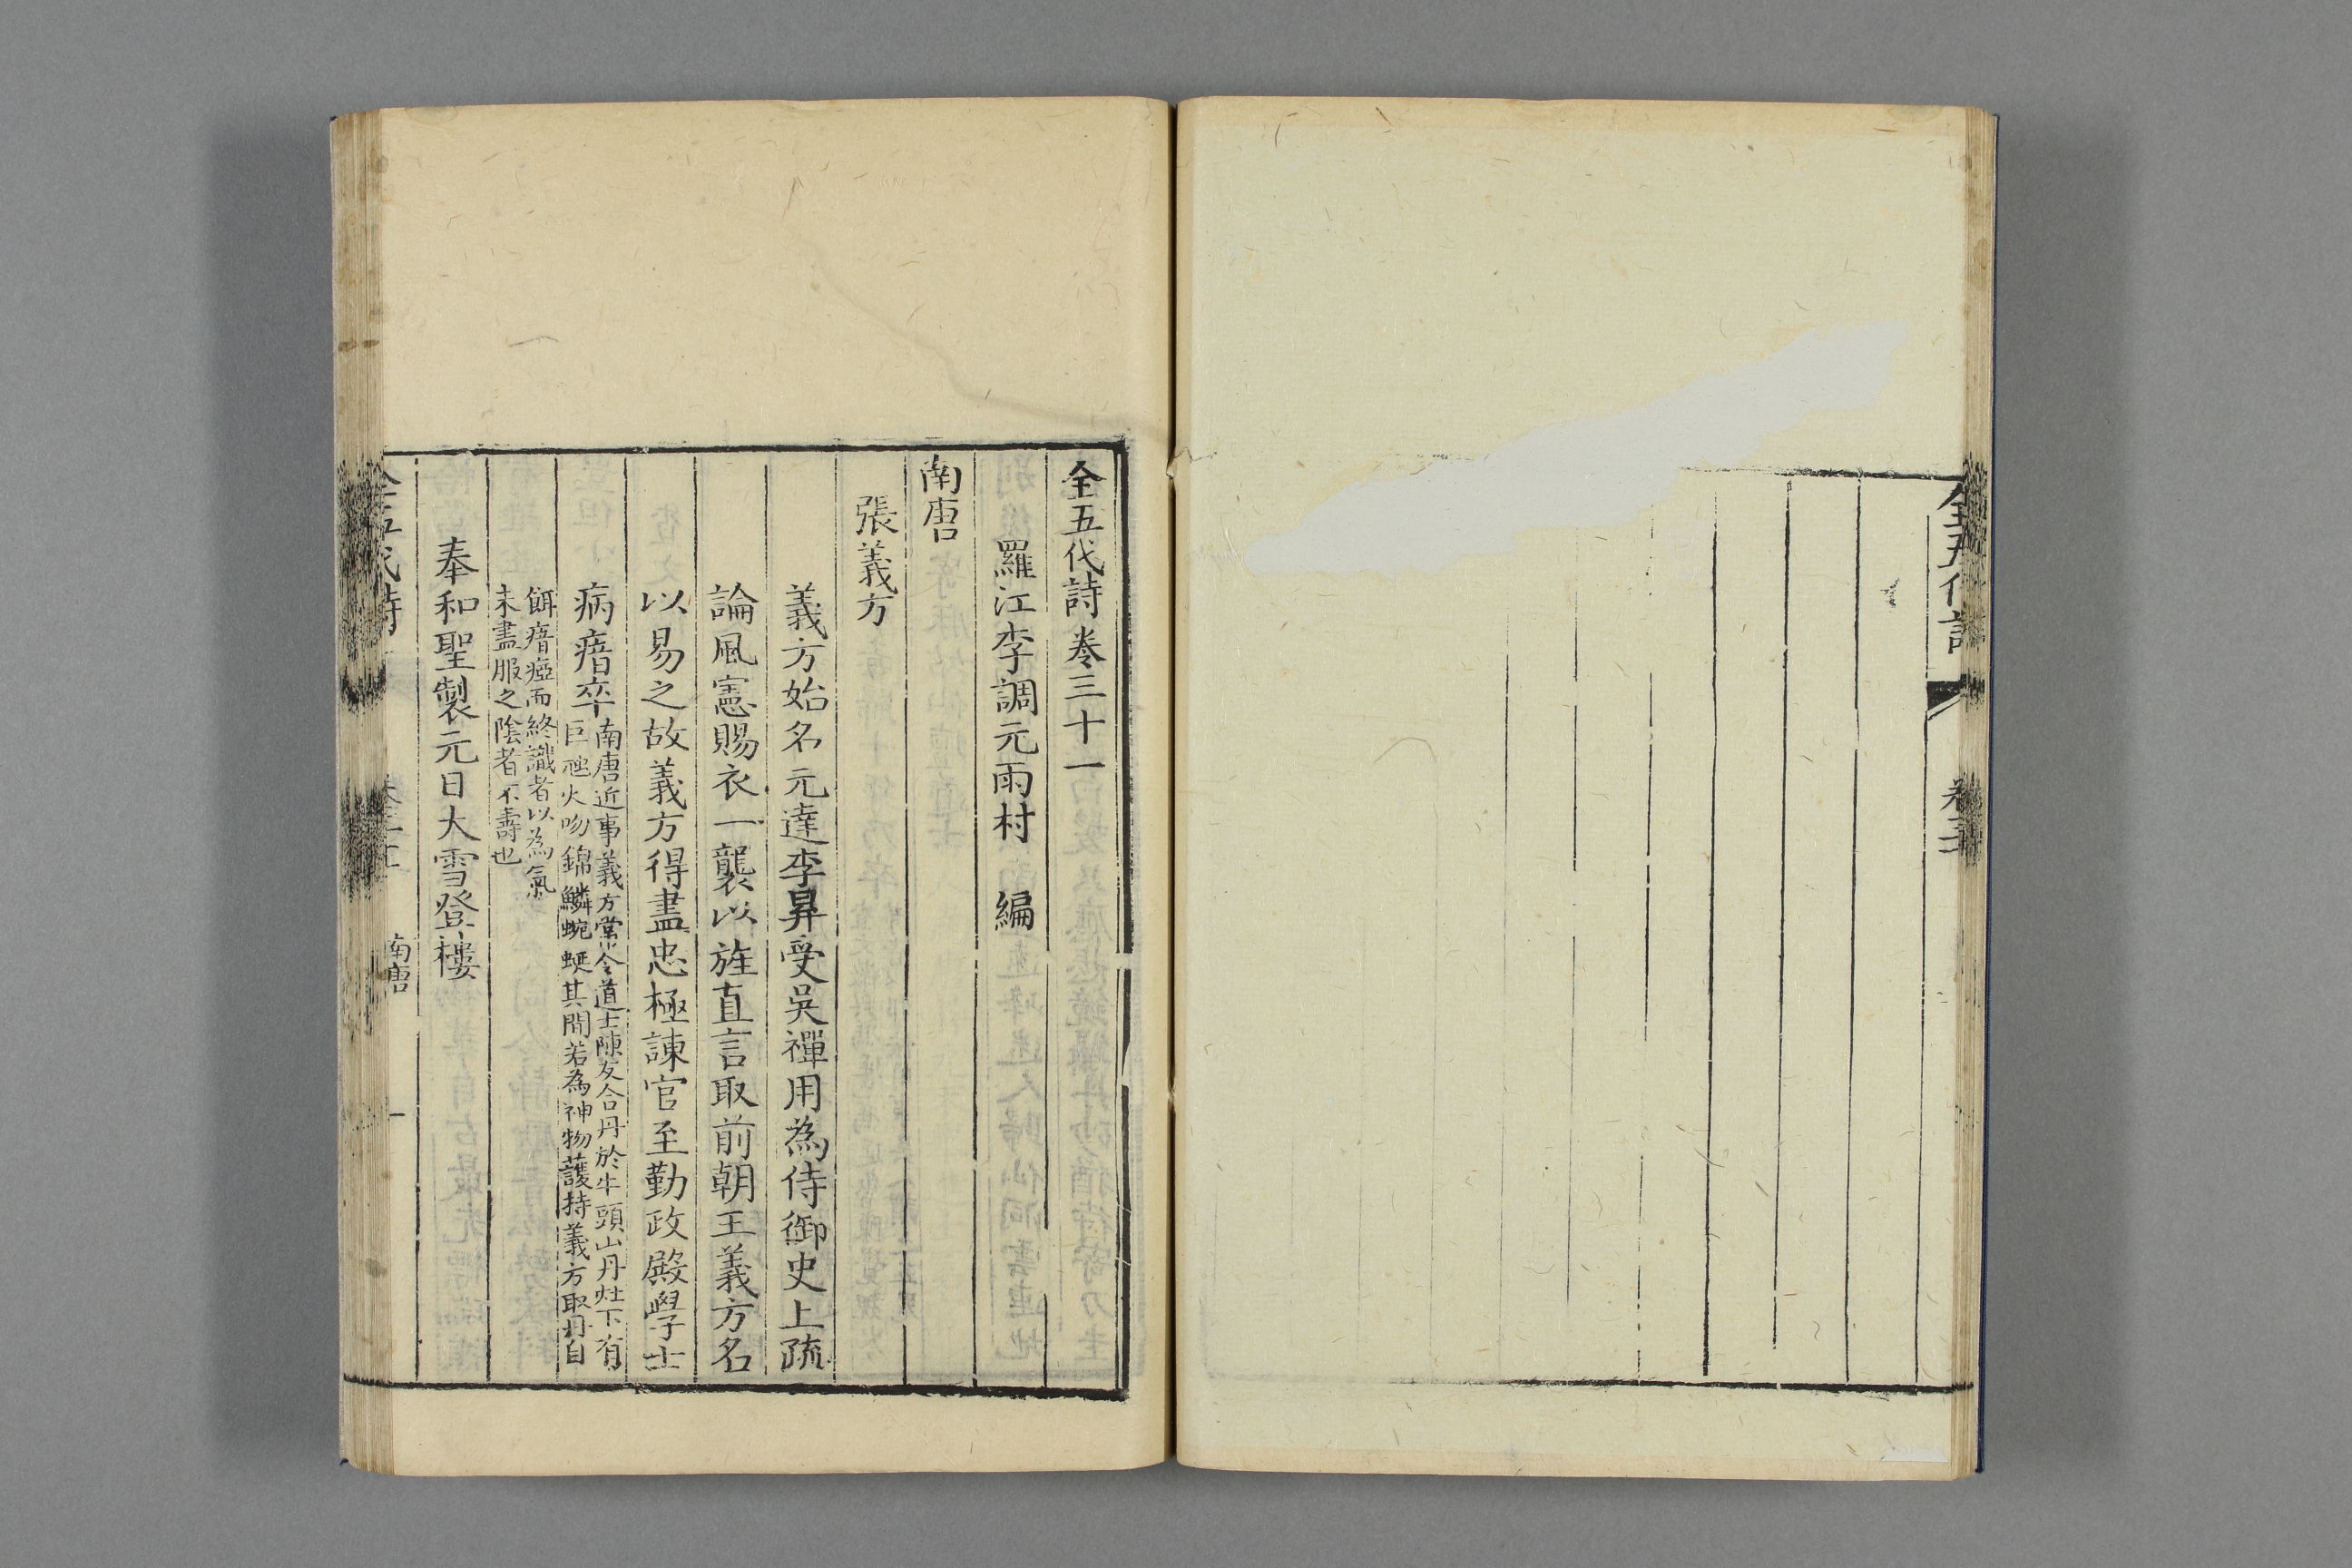 全五代詩
全五代詩卷三十一
羅江李調元雨村 編
南唐
張義方
義方始名元達李昪受吳禪用為侍御史上疏
論風憲賜衣一襲以旌直言取前朝王義方名
以易之故義方得盡忠極諫官至勤政殿學士
病瘖卒南唐近事義方嘗令道士陳友合丹於牛頭山丹灶下有
巨虺火吻錦鱗蜿蜒其間若為神物護持義方取丹自
餌瘖瘂而終識者以為氣
未盡服之陰者不壽也
奉和聖製元日大雪登樓
全五代詩
南唐
一